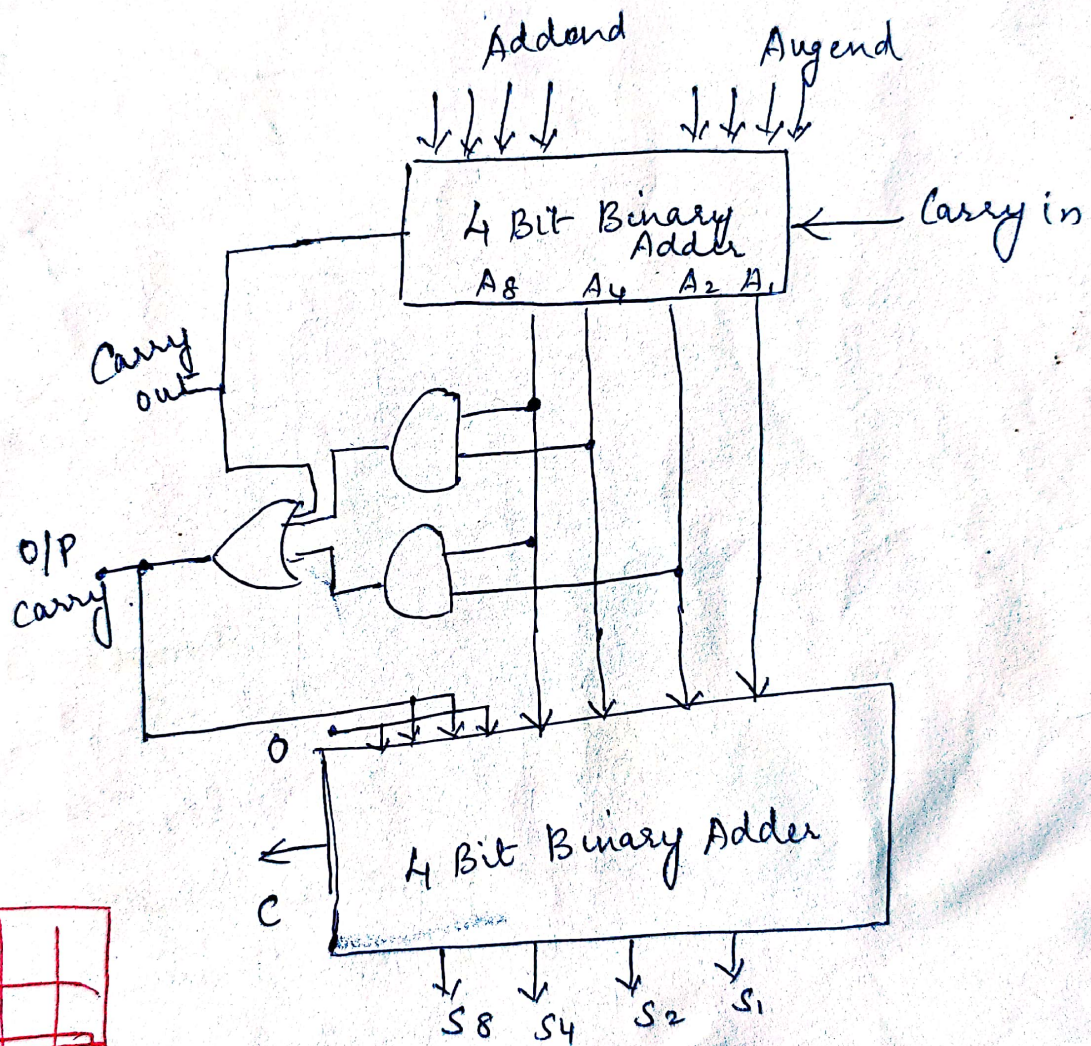 Addend Augend
4 Bit Binary
Adder
Carry in
A8 A4 A2 A1
Carry
out
O/P
carry
0
4 Bit Binary Adder
C
S8 S4 S2 S1